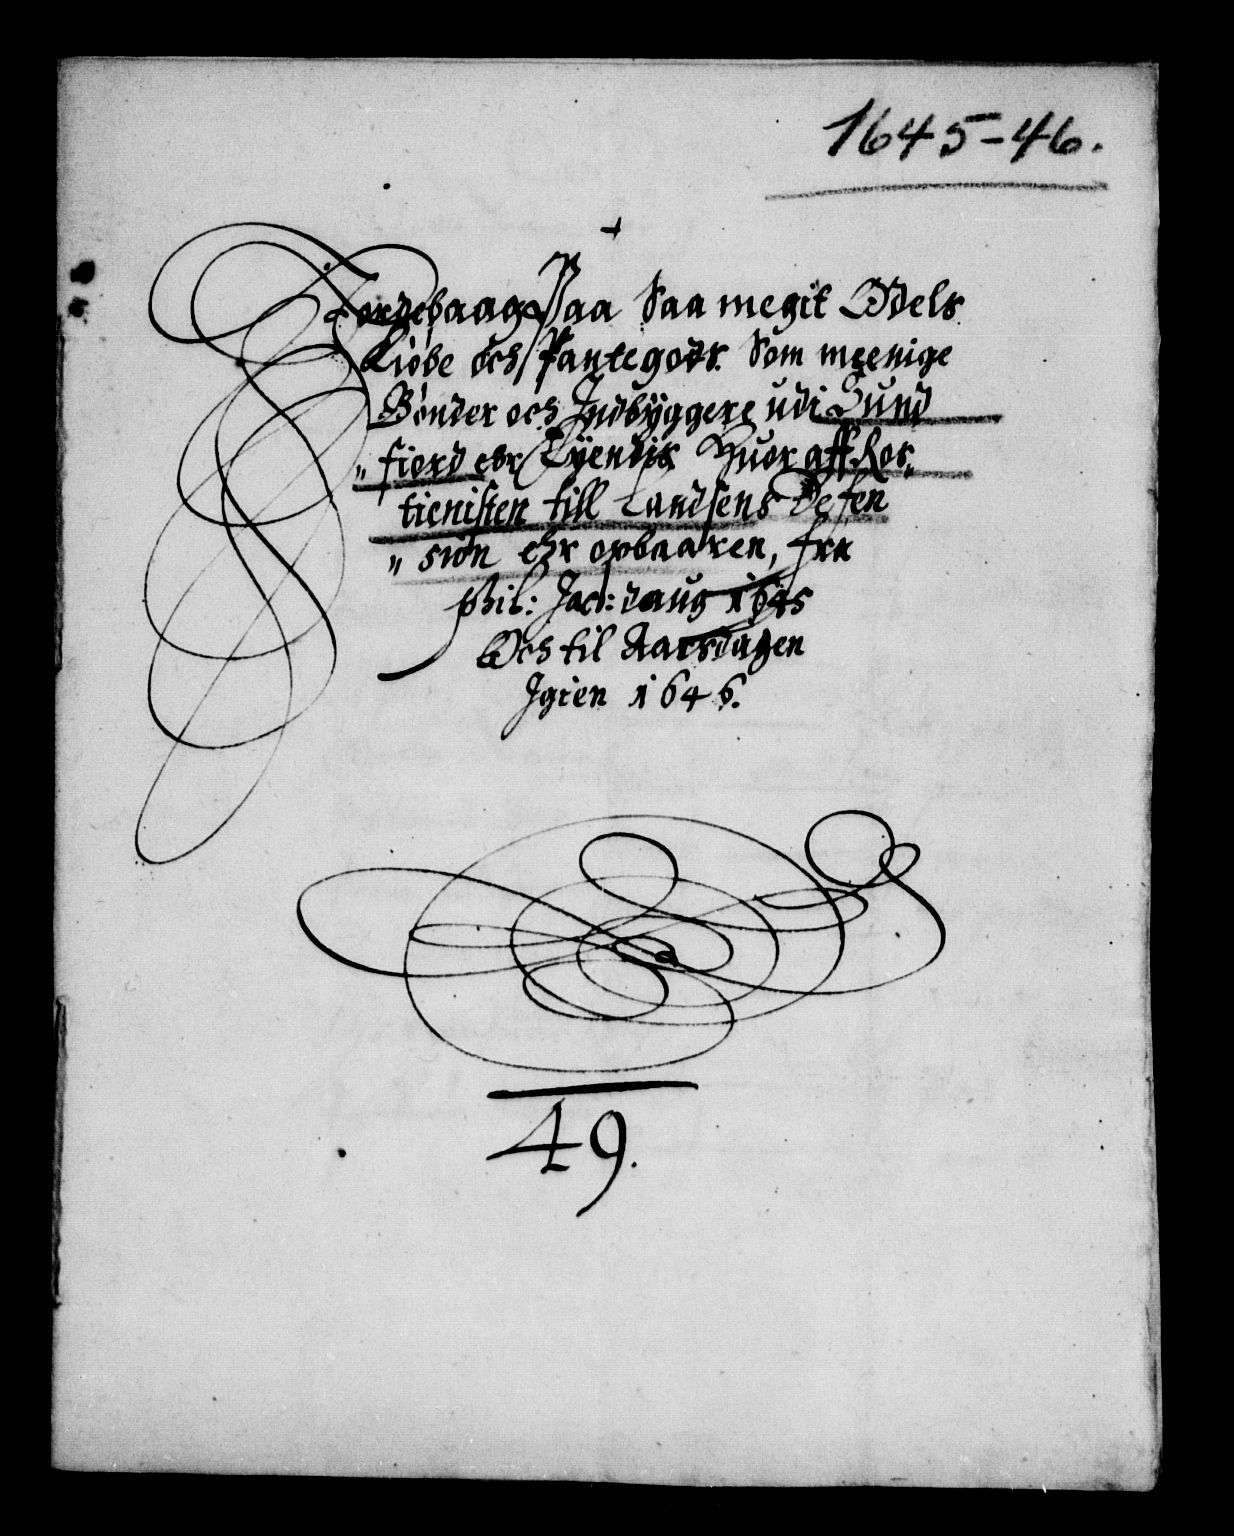 1645-46.
Jordebaag Paa Saa megit Odels
Kiøbe och Pantegods. Som meenige
Bønder och Indbÿggere udi Sund
„ fiord ehr Eÿendis Huor aff Ros„
tienisten till Landsens Defen
„ sion ehr opbaaren, fra
Phil: Jacob: daug 1645
Och til Aarsdagen
Igien 1646.
49.